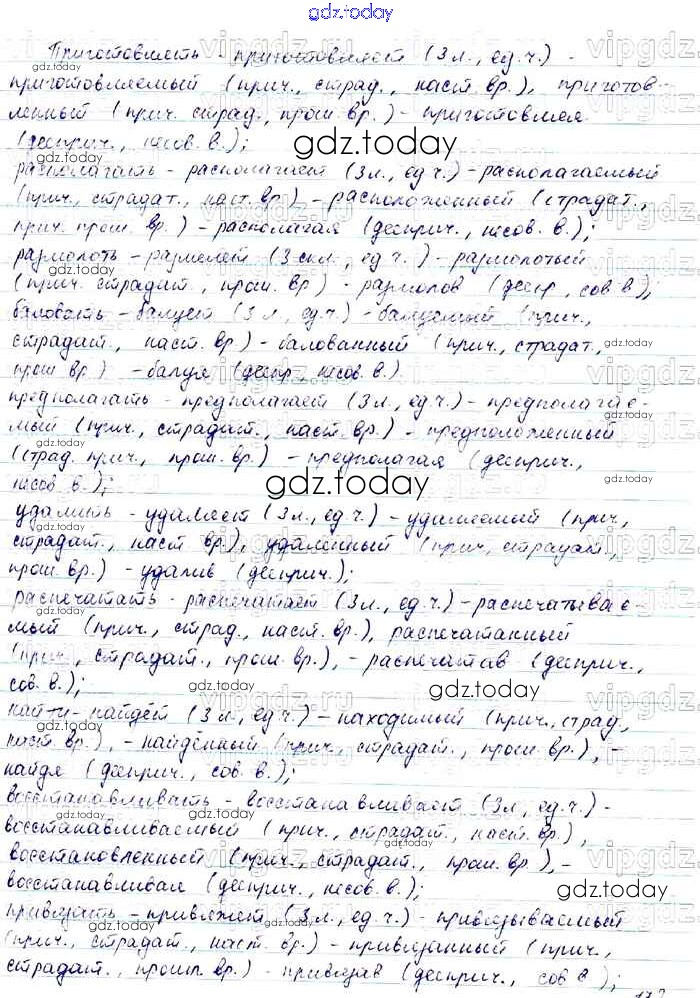 gdz.today
Приготовлять - приготовляет (3 л., ед.ч.) -
приготовляемый (прич., страд., наст. вр.), приготов-
ленный (прич. страд., прош. вр.) - приготовляя
(дееприч., несов. в.);
gdz.today
располагать - располагает (3 л., ед ч.) - располагаемый
(прич., страдат., наст. вр.) - расположенный (страдат.,
прич. прош. вр.) - располагая (дееприч., несов. в.);
размолоть - размелет (3 скл., ед ч.) - размолотый
(прич. страдат., прош. вр) - размолов (деепр., сов в);
баловать - балует (3 л., ед.ч.) - балуемый (прич.,
страдат., наст. вр) - балованный (прич., страдат.,
прош вр.) - балуя (деепр., несов. в.)
предполагать - предполагает (3 л., ед.ч.) - предполагае-
мый (прич., страдат., наст. вр.) - предположенный
(страд. прич., прош. вр.) - предполагая (дееприч.,
несов в.);
gdz.today
удалить - удаляет (3 л., ед ч.) - удаляемый (прич,
страдат., наст вр.), удалённый (прич, страдат.,
прош. вр.) - удалив (дееприч.);
распечатать - распечатает (3 л., ед.ч.) - распечатывае-
мый (прич., страд., наст. вр.), распечатанный
(прич., страдат., прош. вр.), - распечатав (дееприч.,
сов. в.);
gdz.today
най-ти - найдёт (3 л., ед.ч.) - находимый (прич., страд,
наст. вр.), - найденный (прич., страдат., прош. вр.), -
найдя (дееприч., сов. в.);
восстанавливать - восстанавливает (3 л., ед.ч.) -
восстанавливаемый (прич., страдат., наст. вр.),
восстановленный (прич., страдат., прош. вр), -
восстанавливая (дееприч., несов. в.);
gdz.today
привязать - привяжет (3 л., ед. ч.) - привязываемый
(прич., страдат., наст. вр.) - привязанный (прич.,
страдат., прошл вр.) - привязав (дееприч., сов в);